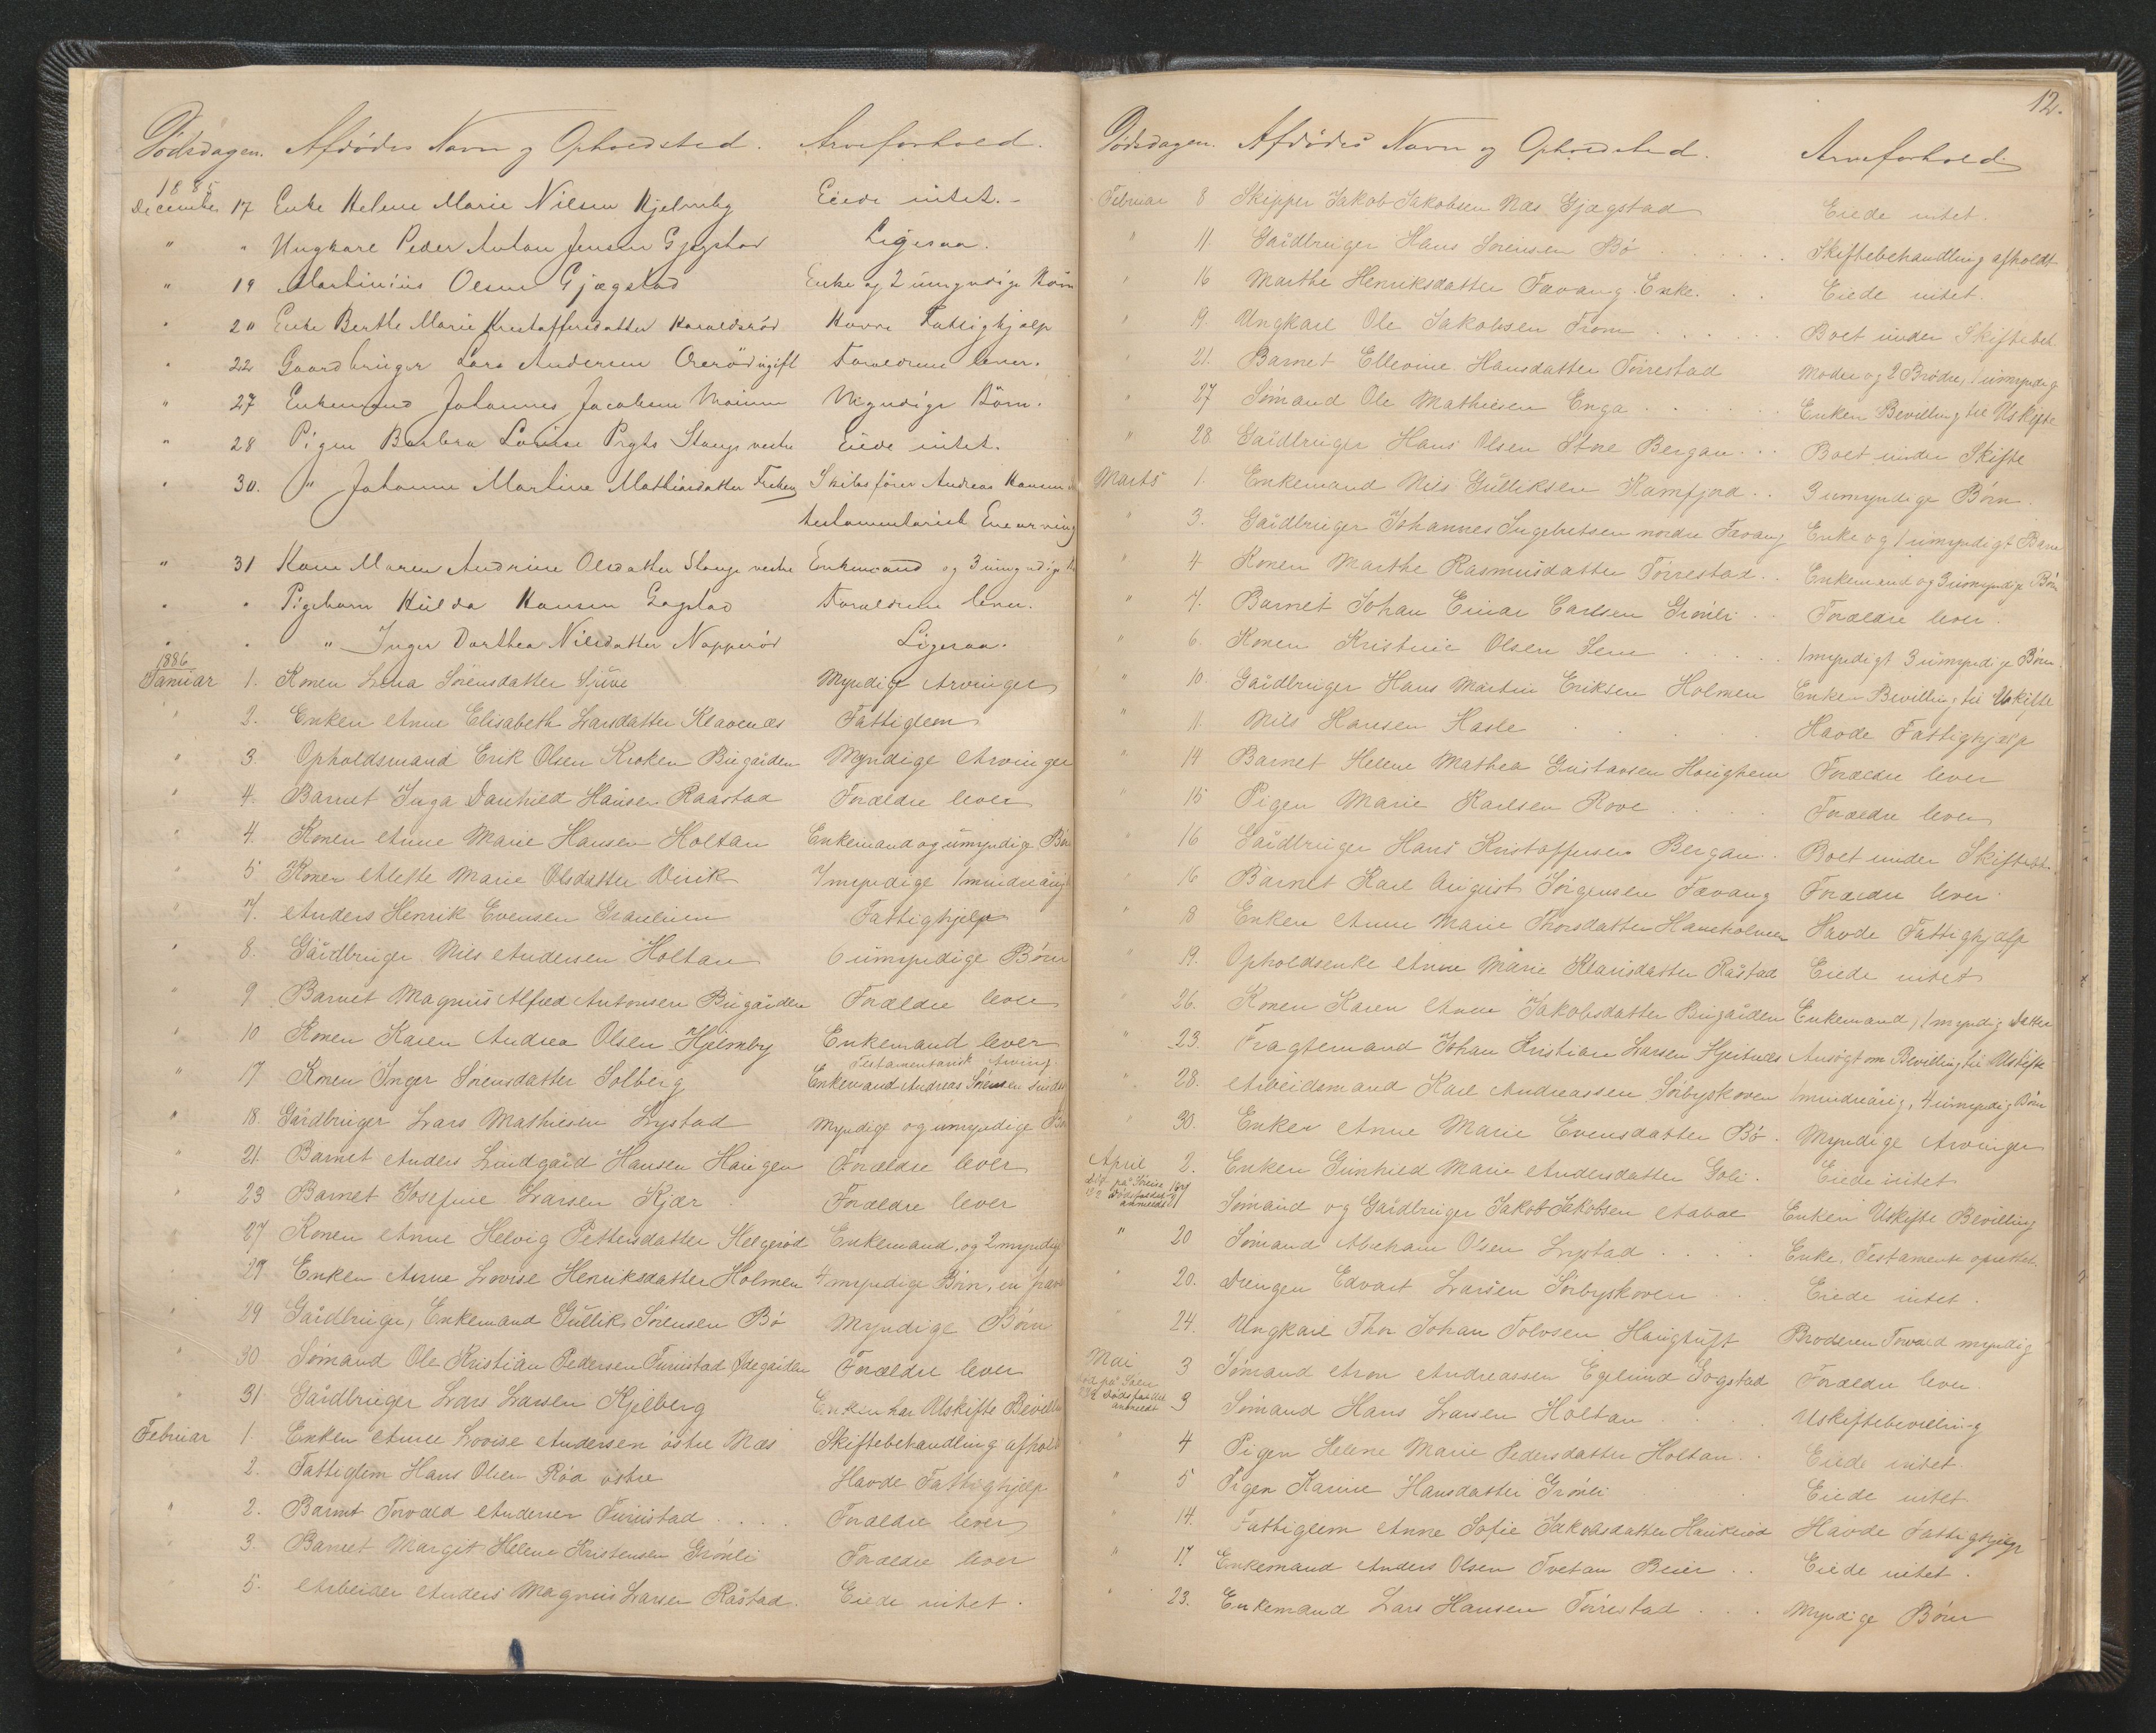 Dødsdagen. Afdødes Navn og Opholdsted. Arveforhold.
1885
December 17 Enke Helene Marie Nilsen Hjelmby Eiede intet. -
" " Ungkarl Peder Anton Jensen Gjegstad Ligesaa.
" 19 Martinius Olsen Gjægstad Enke og 2 umyndige Børn
" 20 Enke Berthe Marie Kristoffersdatter Haraldsrød Havde Fattighjelp
" 22 Gaardbruger Lars Andersen Orerød ugift Forældrene lever.
" 27 Enkemand Johannes Jacobsen Moiunn Myndige Børn.
" 28 Pigen Barbra Lovise Prytz Stange vestre Eiede intet.
" 30. " Johanne Martine Mathiasdatter Skibsfører Andreas Hansen
testamentarisk Enearving
" 31 Kone Maren Andrine Olsdatter Stange vestre Enkemand og 3 umyndige
" " Pigebarn Hulda Hansen Gogstad Forældrene lever.
" " " Inger Dorthea Nilsdatter Napperød Ligesaa.
1886
Januar 1. Konen Lena Sørensdatter Sjuve Myndige Arvinger
" 2. Enken Anne Elisabeth Larsdatter Klavenæs Fattiglem
" 3. Opholdsmand Erik Olsen Kroken Bugården Myndige Arvinger
" 4. Barnet Inga Danhild Hansen Raastad Forældre lever
" 4. Konen Anne Marie Hansen Holtan Enkemand og umyndige Børn
" 5 Konen Alette Marie Olsdatter Virik 7 myndige 1 mindreårig
" 7. Anders Henrik Evensen Granlien Fattighjelp
" 8. Gårdbruger Nils Andersen Holtan 6 umyndige Børn
" 9 Barnet Magnus Alfred Antonsen Bugården Forældre lever
" 10 Konen Karen Andrea Olsen Hjelmby Enkemand lever
Testamentarisk Arving
" 17 Konen Inger Sørensdatter Solberg Enkemand Andreas Sørensen
" 18. Gårdbruger Lars Mathiesen Lystad Myndige og umyndige Børn
" 21. Barnet Anders Lindgård Hansen Haugen Forældre lever
" 23 Barnet Josefine Larsen Kjær Forældre lever
" 27 Konen Anne Helvig Pettersdatter Helgerød Enkemand, og 2 myndige
" 29 Enken Anne Lovise Henriksdatter Holmen 4 myndige Børn, en
" 29 Gårdbruger, Enkemand Gullik Sørensen Bø Myndige Børn
" 30 Sømand Ole Kristian Pedersen Furustad Ødegården Forældre lever
" 31 Gårdbruger Lars Larsen Kjelberg Enken har Uskifte Bevilling
Februar 1. Enken Anne Lovise Andersen østre Næs Skiftebehandling afholdt
" 2. Fattiglem Hans Olsen Rød østre Havde Fattighjelp
" 2. Barnet Torvald Andersen Furustad . . . . Forældre lever
" 3. Barnet Margit Helene Kristensen Grønli Forældre lever
" 5. Arbeider Anders Magnus Larsen Råstad. Eiede intet.
12.
Dødsdagen. Afdødes Navn og Opholdsted. Arveforhold.
Februar 8 Skipper Jakob Jakobsen Næs Gjægstad Eiede intet.
" 11. Gårdbruger Hans Sørensen Bø . . . . . . Skiftebehandling afholdt
" 16 Marthe Henriksdatter Fævang. Enke. . . Eiede intet.
" 9. Ungkarl Ole Jakobsen From . . . . . Boet under Skiftebeh.
" 21. Barnet Ellevine Hansdatter Tørrestad Moder og 2 Brødre, 1 umyndig
" 27 Sømand Ole Mathiesen Enga . . . . . . Enken Bevilling til Uskifte
" 28. Gårdbruger Hans Olsen Stne Bergan . . . Boet under Skifte
Marts 1. Enkemand Nils Gulliksen Kamfjord . . 3 umyndige Børn.
" 3. Gårdbruger Johannes Ingebretsen nordre Fævang Enke og 1 umyndigt Barn
" 4 Konen Marthe Rasmusdatter Tørrestad . . Enkemand og 3 umyndige Børn
" 7. Barnet Johan Einar Carlsen Grønli . . Forældre lever.
" 6. Konen Kristine Olsen Sem . . . . . 1 myndigt 3 umyndige Børn.
" 10. Gårdbruger Hans Martin Eriksen Holmen Enken Bevilling til Uskifte
" 11. Nils Hansen Hasle . . . . . . Havde Fattighjælp
" 14 Barnet Helene Mathea Gustavsen Haughem Forældre lever
" 15 Pigen Marie Karlsen Rove . . . Forældre lever
" 16 Gårdbruger Hans Kristoffersen Bergan . . Boet under Skiftebeh.
" 16 Barnet Karl August Jørgensen Fævang Forældre lever.
" 18 Enken Anne Marie Thorsdatter Haneholmen Havde Fattighjælp
" 19. Opholdsenke Anne Marie Klausdatter Råstad Eiede intet
" 26. Konen Karen Anne Jakobsdatter Bugården Enkemand, 1 myndig Datter
" 23. Fragtemand Johan Kristian Larsen Hjertnæs Ansøgt om Bevilling til Uskifte
" 28. Arbeidsmand Karl Andreassen Sørbyskoven 1 mindreårig, 4 umyndig Børn
" 30. Enken Anne Marie Evensdatter Bø . Myndige Arvinger
April 2. Enken Gunhild Marie Andersdatter Goli . Eiede intet
Død på Søreise Dødsfaldet anmeldt Sømand og Gårdbruger Jakob Jakobsen Aabol Enken Uskifte Bevilling
" 20 Sømand Abraham Olsen Lystad . . . . Enke, Testamente oprettet.
" 20. Drengen Edvart Larsen Sørbyskoven . . . Eiede intet.
" 24. Ungkarl Thor Johan Tolvsen Haugtuft Broderen Torvald myndig
Mai 3 Sømand Aron Andreassen Egelund Gogstad Forældre lever
Død på Søen Dødsfaldet anmeldt 3 Sømand Hans Larsen Holtan . . . . Uskiftebevilling
" 4 Pigen Helene Marie Pedersdatter Holtan . . Eiede intet.
" 5 Pigen Karine Hansdatter Grønli . Eiede intet.
" 14. Fattiglem Anne Sofie Jakobsdatter Haukerød Havde Fattighjelp
" 17 Enkemand Anders Olsen Tvetan Beier . . Eiede intet.
" 23. Enkemand Lars Hansen Tørrestad . . . Myndige Børn